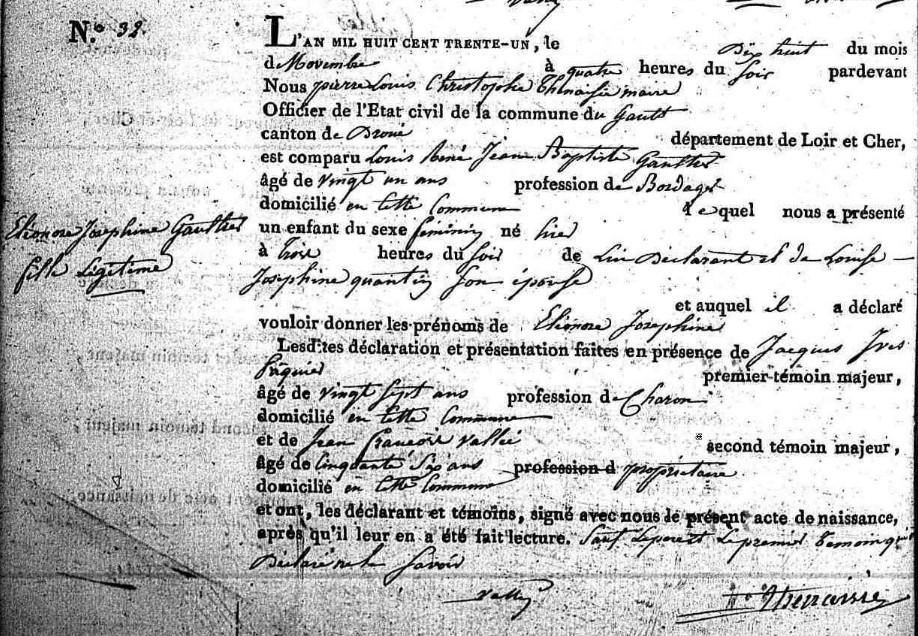 N.° 32.
L'AN MIL HUIT CENT TRENTE-UN, le Dix huit du mois
de Novembre à quatre heures du Soir pardevant
Nous pierre Louis Christophe Thenaisie maire
Officier de l'Etat civil de la commune du Gault
canton de Droué département de Loir et Cher,
est comparu Louis René Jean Baptiste Gaulthier
âgé de vingt un ans profession de Bordager
domicilié en Cette Commune lequel nous a présenté
un enfant du sexe feminin né hier
à Trois heures du Soir de Lui Déclarant et de Louise
Josephine quantin Son épouse
et auquel il a déclaré
vouloir donner les prénoms de Eléonore Josephine
Lesdites déclaration et présentation faites en présence de Jacques Yves
premier témoin majeur,
âgé de vingt Sept ans profession de Charon
domicilié en Cette Commune
et de Jean François Vallée second témoin majeur,
âgé de Cinquante Six ans profession d propriétaire
domicilié en Cette Commune
et ont, les déclarant et témoins, signé avec nous le présent acte de naissance,
après qu'il leur en a été fait lecture. Sauf Le pere et Le premier Temoin qui
Déclaré ne le Savoir
Eléonore Josephine Gaulthier
fille Légitime
Vallée
Thenaisie